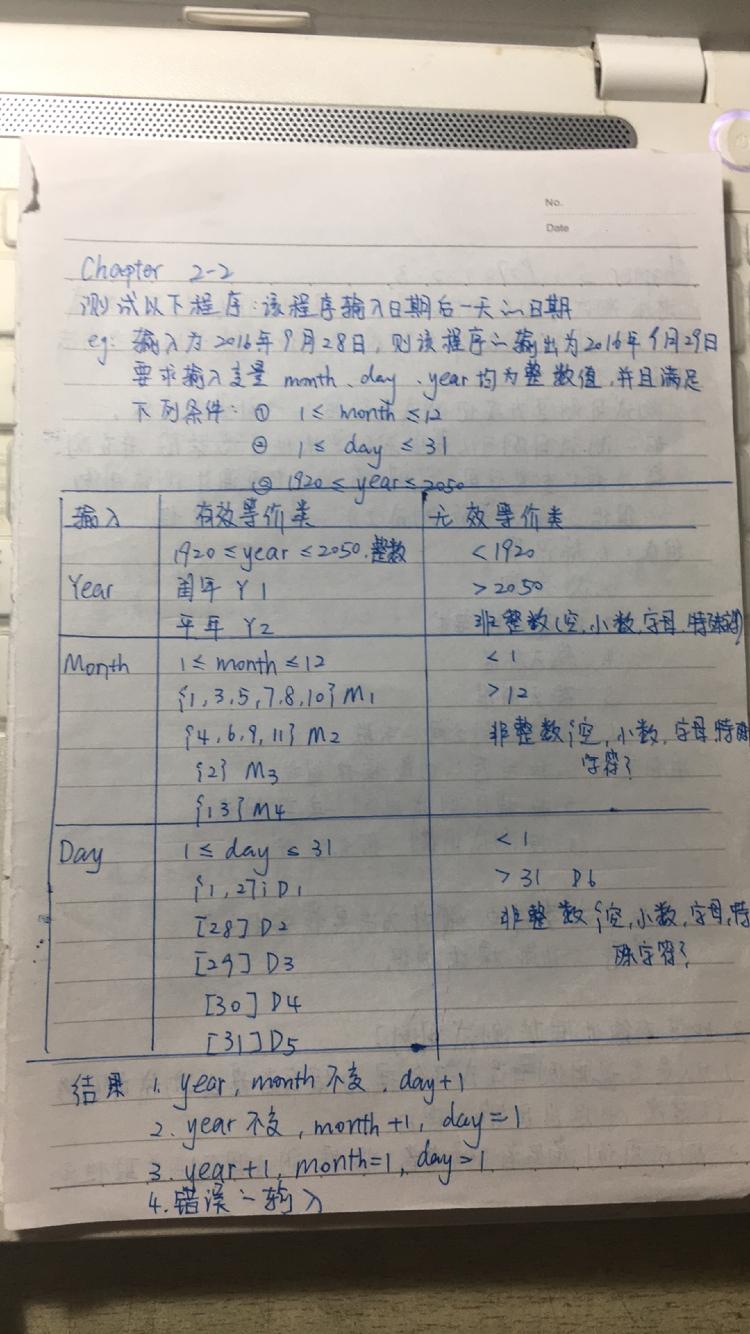 No.
Date
Chapter 2-2
测试以下程序:该程序输入日期后一天的日期
eg: 输入为2016年9月28日,则该程序的输出为2016年9月29日
要求输入变量 month、day、year均为整数值,并且满足
下列条件:① 1≤month≤12
② 1≤ day ≤31
③ 1920≤year≤2050
输入 有效等价类 无效等价类
1920≤year≤2050.整数 <1920
Year 闰年 Y1 >2050
平年 Y2 非整数(空,小数,字母,特殊
Month 1≤month≤12 <1
{1,3,5,7,8,10}M1 >12
{4,6,9,11} M2 非整数{空,小数,字母,特殊
{2} M3 字符}
{13}M4
Day 1≤day≤31 <1
{1,27} D1 >31 D6
[28] D2 非整数{空,小数,字母,特
[29] D3 殊字符}
[30] D4
[31] D5
结果 1. year, month 不变, day+1
2. year 不变, month+1, day=1
3. year+1, month=1, day=1
4. 错误的输入